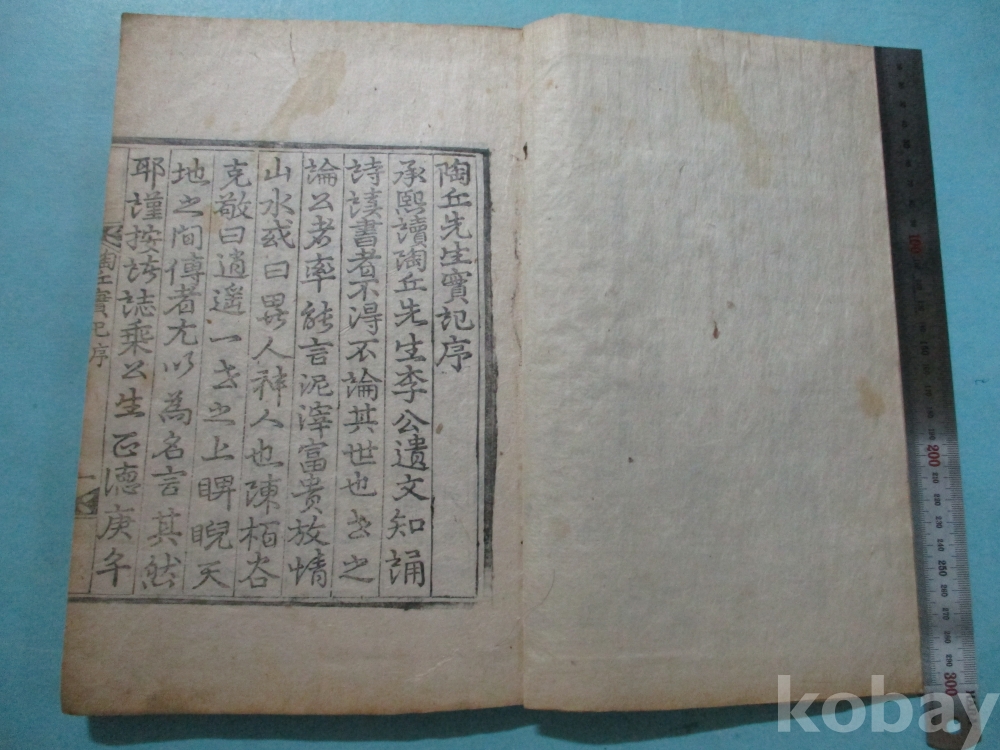 陶丘先生實記序
承熙讀陶丘先生李公遺文知誦
詩讀書者不得不論其世也世之
論公者率能言泥滓富貴放情
山水或曰異人神人也陳栢谷
克敬曰逍遙一世之上睥睨天
地之間傳者尤以為名言其然
耶謹按誌乘公生正德庚午
陶丘實記序
一
kobay
200
250
300